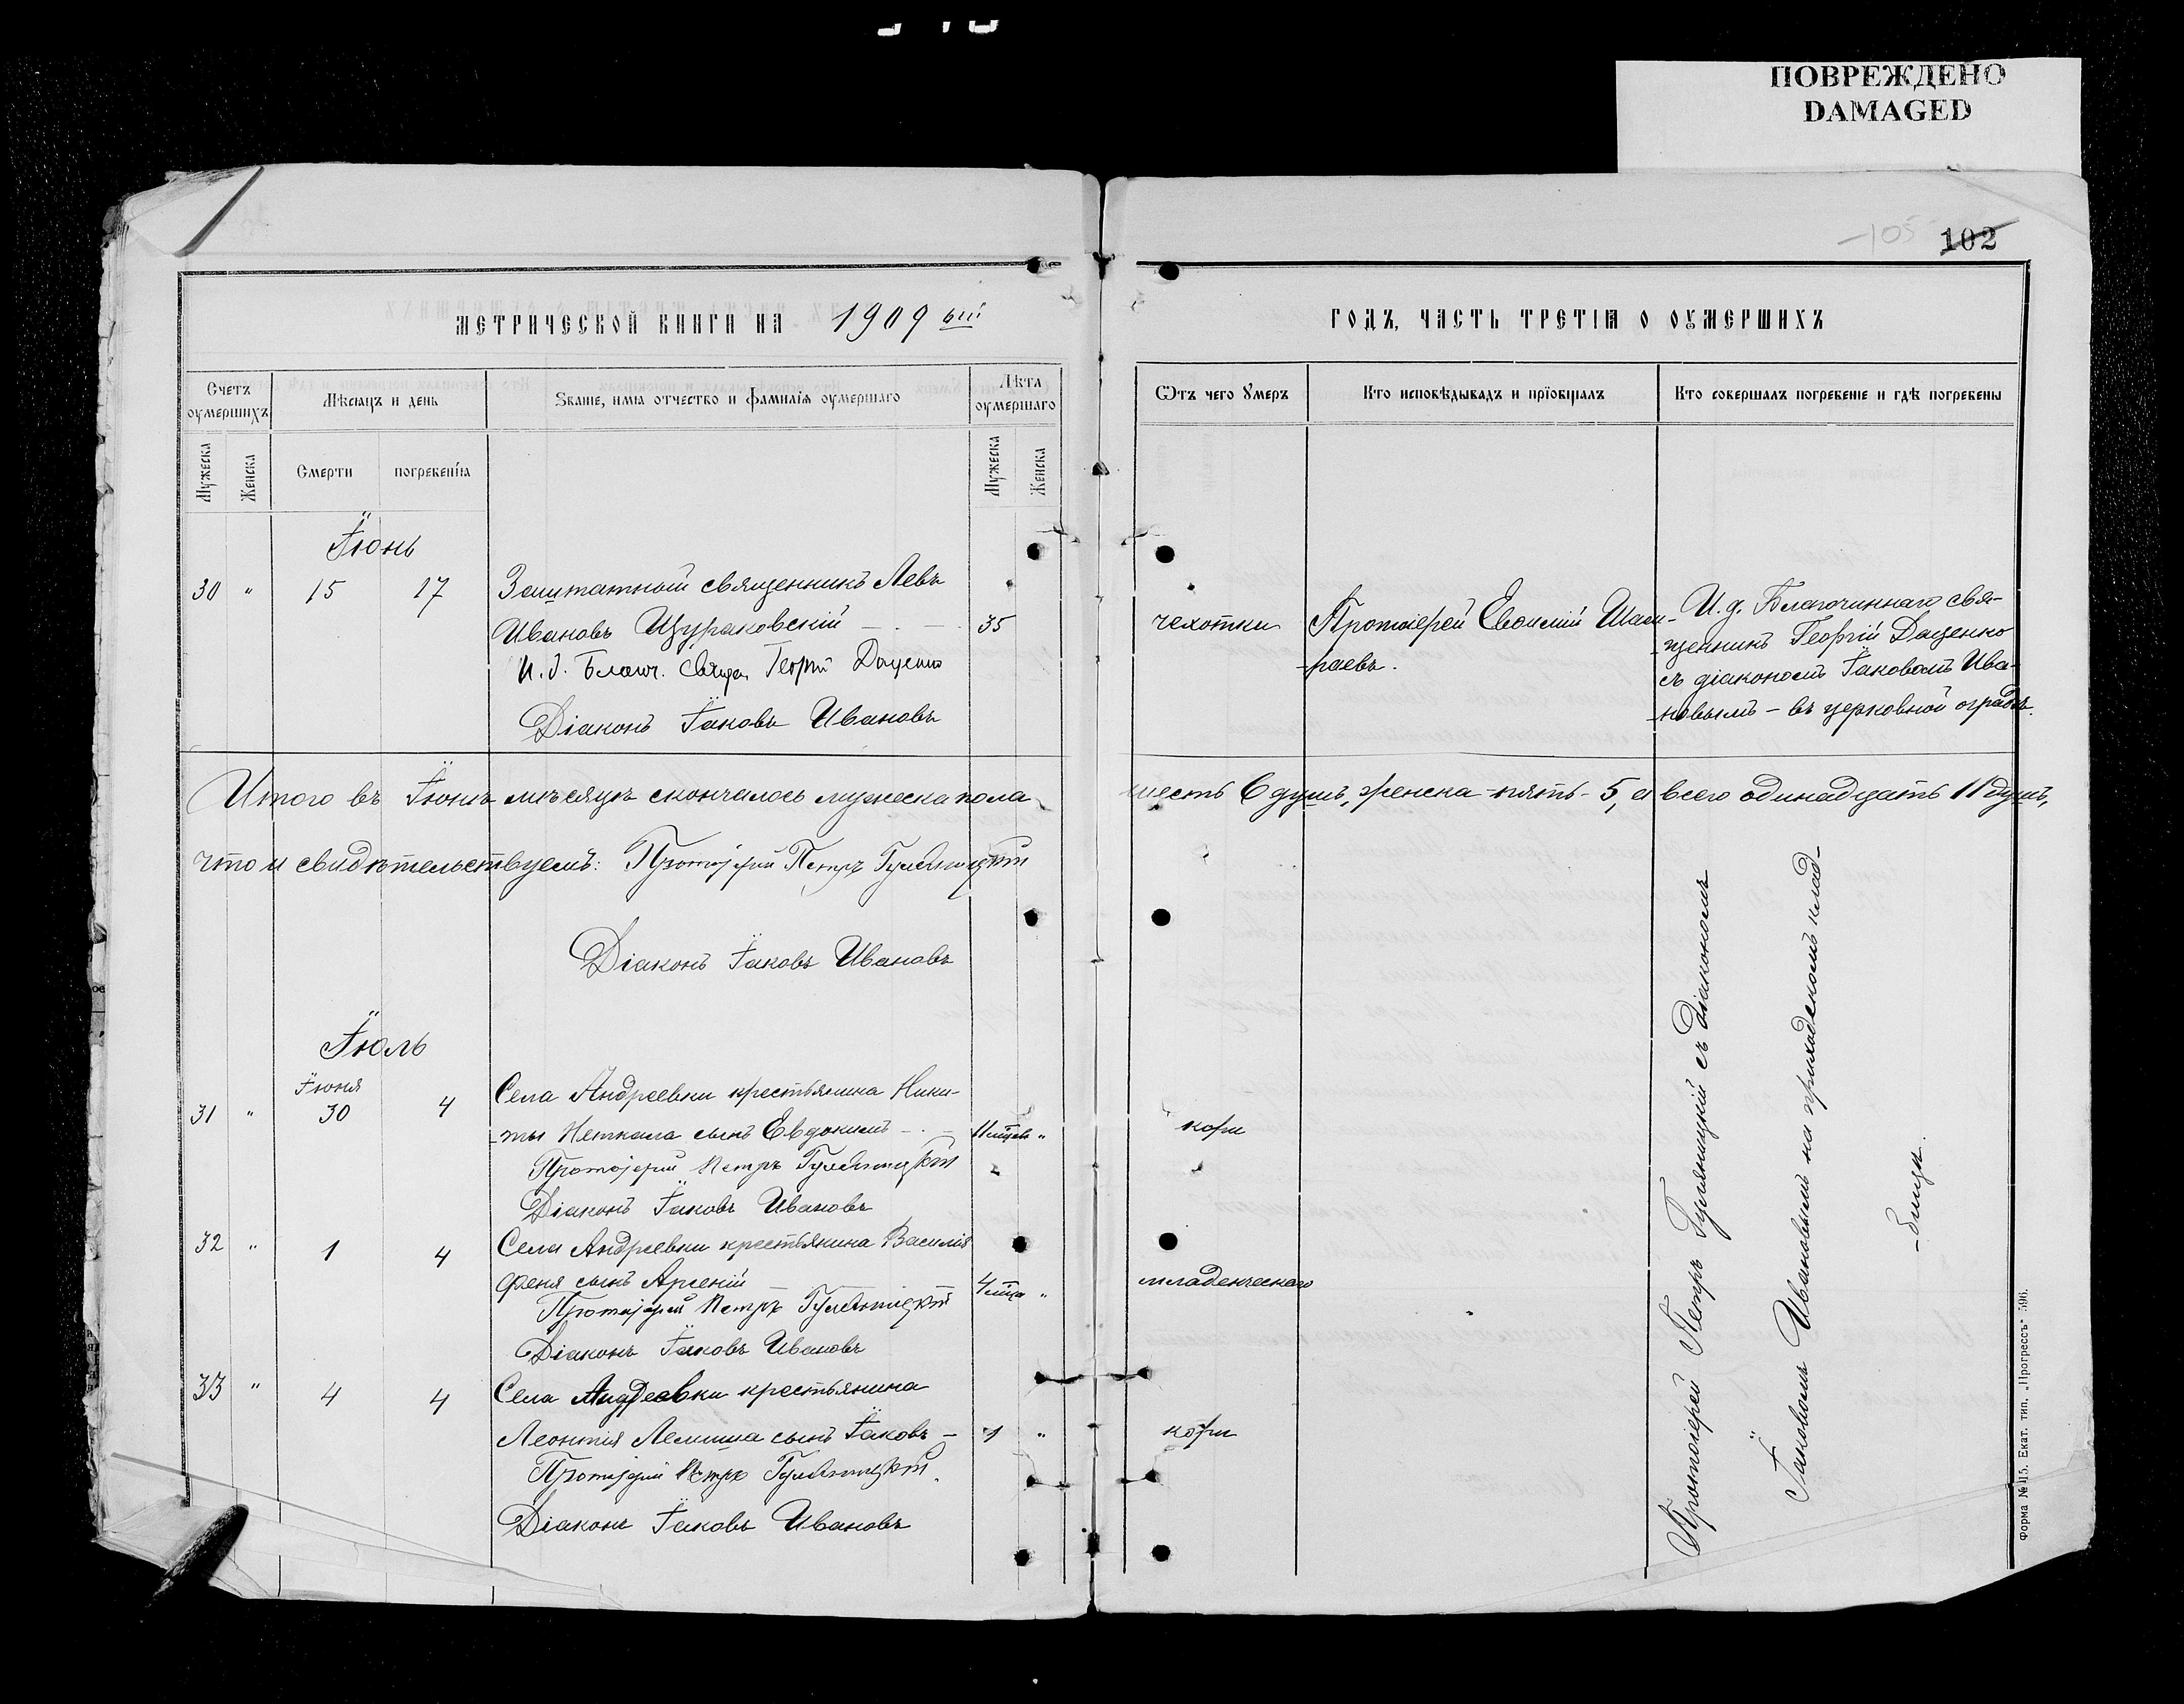 ПОВРЕЖДЕНО
DAMAGED
102
105
МЕТРИЧЕСКОЙ КНИГИ НА 1909 ый
ГОДЪ, ЧАСТЬ ТРЕТІѦ О ОУМЕРШИХЪ
Счетъ оумершихъ
Мѣсѧцъ и день
Званіе, имѧ отчество и фамиліѧ оумершаго
Лѣта оумершаго
Ѿтъ чего Умеръ
Кто исповѣдывалъ и прїобщалъ
Кто совершалъ погребеніе и гдѣ погребены
Мужеска
Женска
Смерти
погребенїѧ
Мужеска
Женска
Іюнь
30 " 15 17 Заштатный священникъ Левъ
Ивановъ Щураковскій 35
чахотки
Протоіерей Евѳимій Шам-
-раевъ.
И. д. Благочиннаго свя-
-щенникъ Георгій Даценко
съ діакономъ Іаковомъ Ива-
-новымъ - въ церковной оградѣ.
И. д. Благоч. Свящ. Георгій Даценко
Діаконъ Іаковъ Ивановъ
Итого въ Іюнѣ мѣсяцѣ скончалось мужеска пола шесть 6 душъ, женска - пять - 5, а всего одинадцать 11 душъ,
что и свидѣтельствуемъ: Протоіерей Петръ
Діаконъ Іаковъ Ивановъ
Іюль
Іюня
31 " 30 4 Села Андреевки крестьянина Ники-
-ты сынъ Евдокимъ 11 мцевъ " кори
Протоіерей Петръ
Діаконъ Іаковъ Ивановъ
32 " 1 4 Села Андреевки крестьянина Василія
сынъ Арсеній 4 мца " младенческаго
Протоіерей Петръ
Діаконъ Іаковъ Ивановъ
33 " 4 4 Села Андреевки крестьянина
Леонтія Лемиша сынъ Іаковъ - 1 " кори
Протоіерей Петръ
Діаконъ Іаковъ Ивановъ
Протоіерей Петръ съ Діакономъ
Іаковомъ Ивановымъ на приходскомъ клад-
-бищѣ.
Форма № 115. Екат. тип. „Прогрессъ" 596.